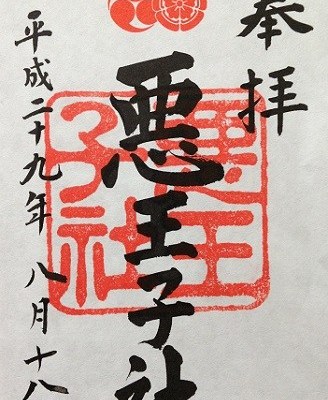 奉拝
悪王子社
平成二十九年八月十八
悪王子社